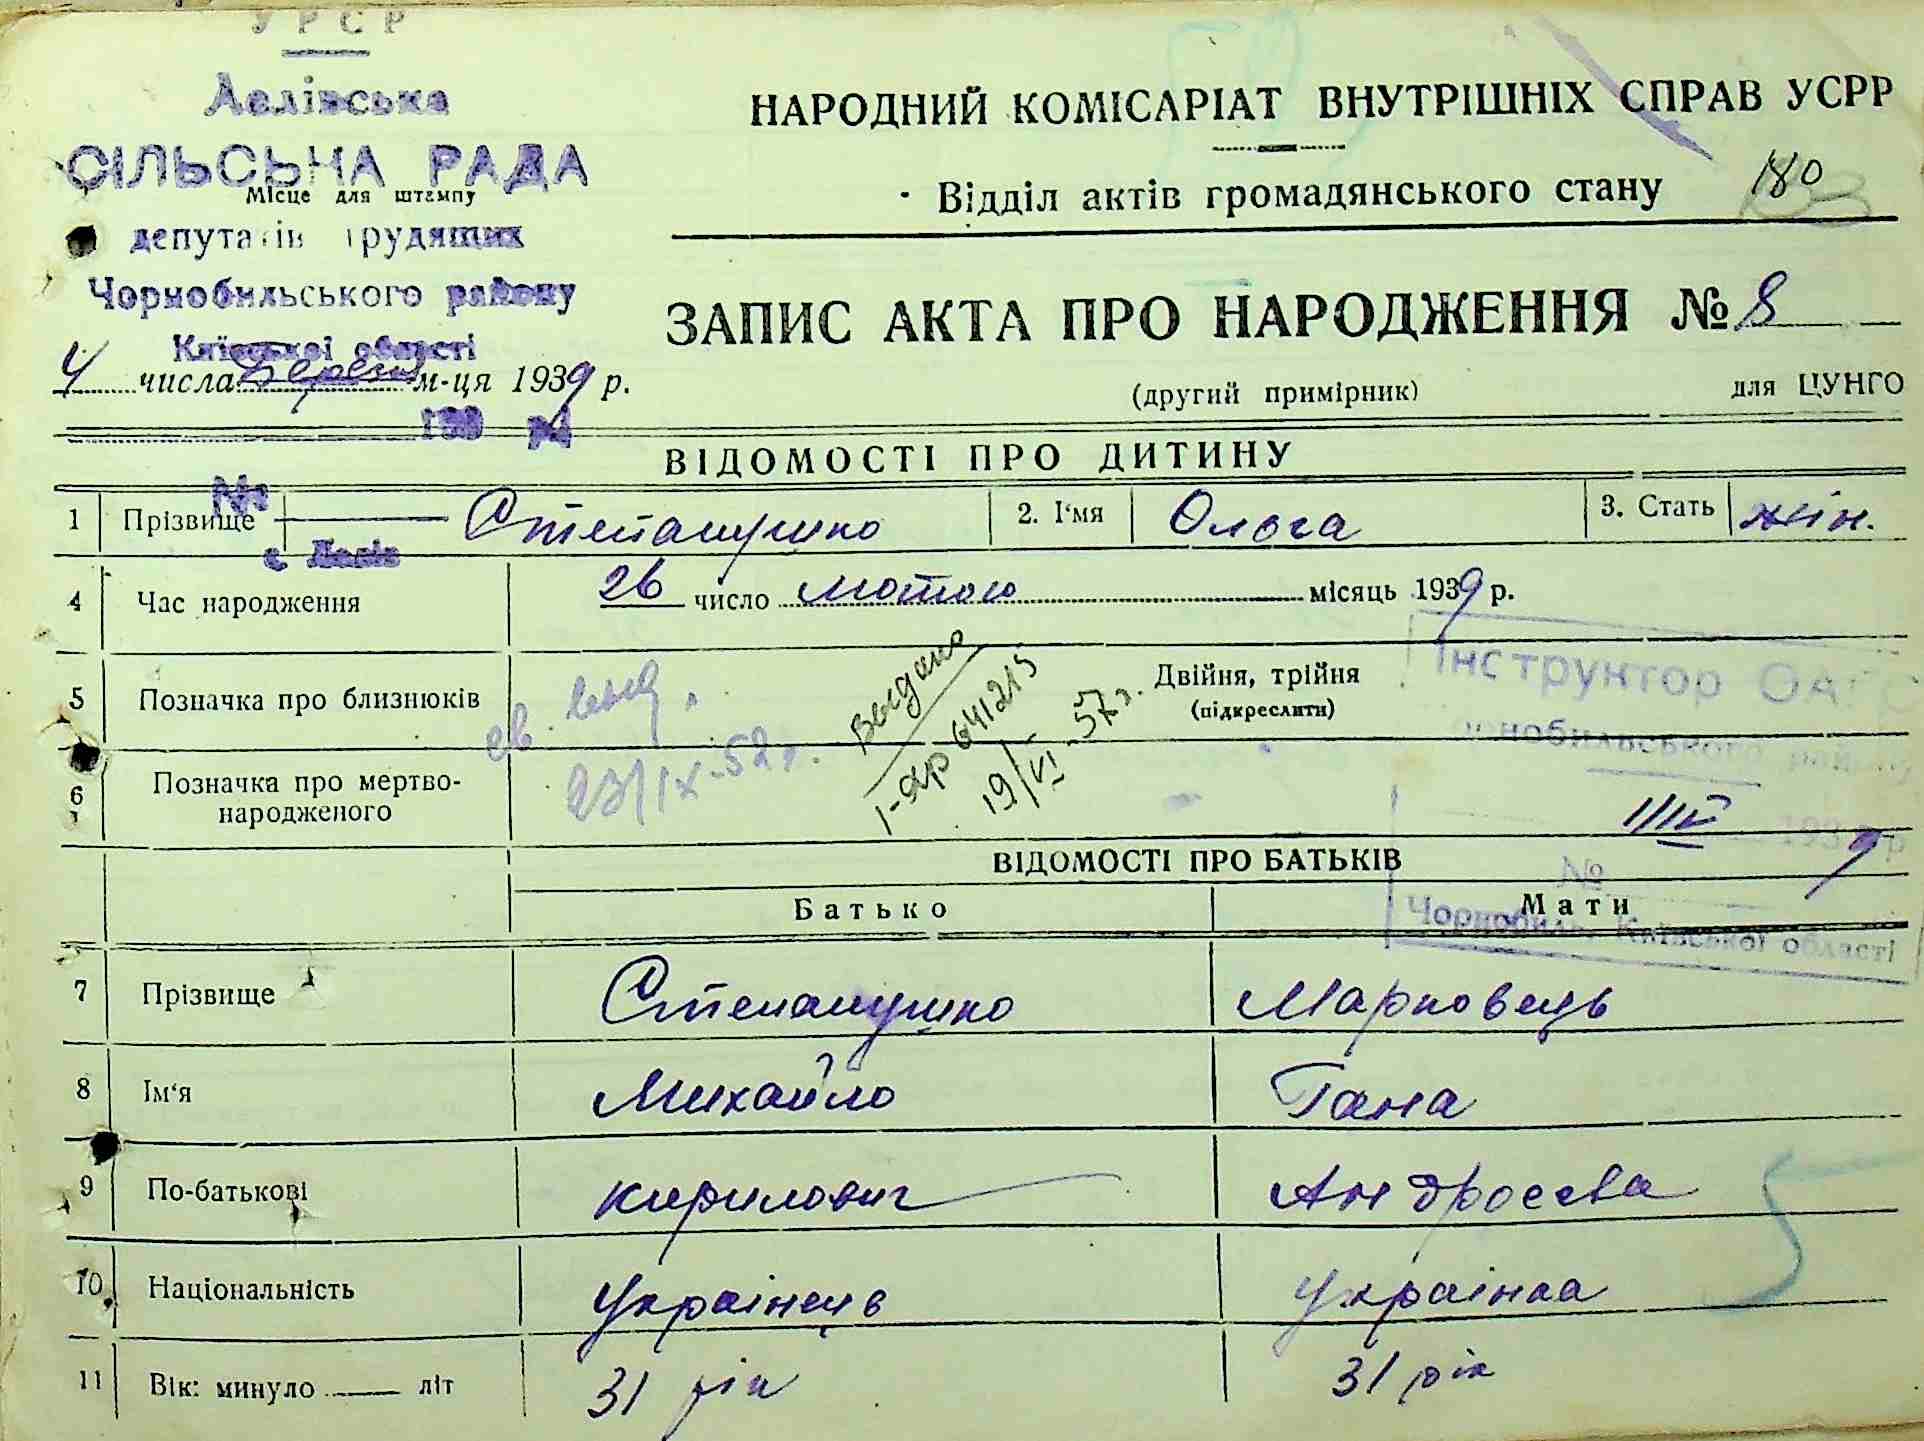 УРСР
Лелівська
СІЛЬСЬКА РАДА
Місце для штампу
депутатів трудящих
Чорнобильського району
Київської області
4 числа березня м-ця 1939 р.
193 р.
№
с. Лелів
НАРОДНИЙ КОМІСАРІАТ ВНУТРІШНІХ СПРАВ УСРР
Відділ актів громадянського стану
180
ЗАПИС АКТА ПРО НАРОДЖЕННЯ № 8
(другий примірник) для ЦУНГО
ВІДОМОСТІ ПРО ДИТИНУ
1 Прізвище Степанушко 2. І'мя Ольга 3. Стать жін.
4 Час народження 26 число лютого місяць 1939 р.
5 Позначка про близнюків Двійня, трійня
(підкреслити)
св. выд.
23/IX-52 г.
выдано
19/VI 57 г.
Інструктор ОАГС
Чорнобильського району
6 Позначка про мертво-
народженого
1939 р
№
Чорнобиль, Київської області
ВІДОМОСТІ ПРО БАТЬКІВ
Батько Мати
7 Прізвище Степанушко Марковець
8 Ім'я Михайло Гана
9 По-батькові Кирилович Андроєєва
10 Національність Українець Українка
11 Вік: минуло літ 31 рік 31 рік